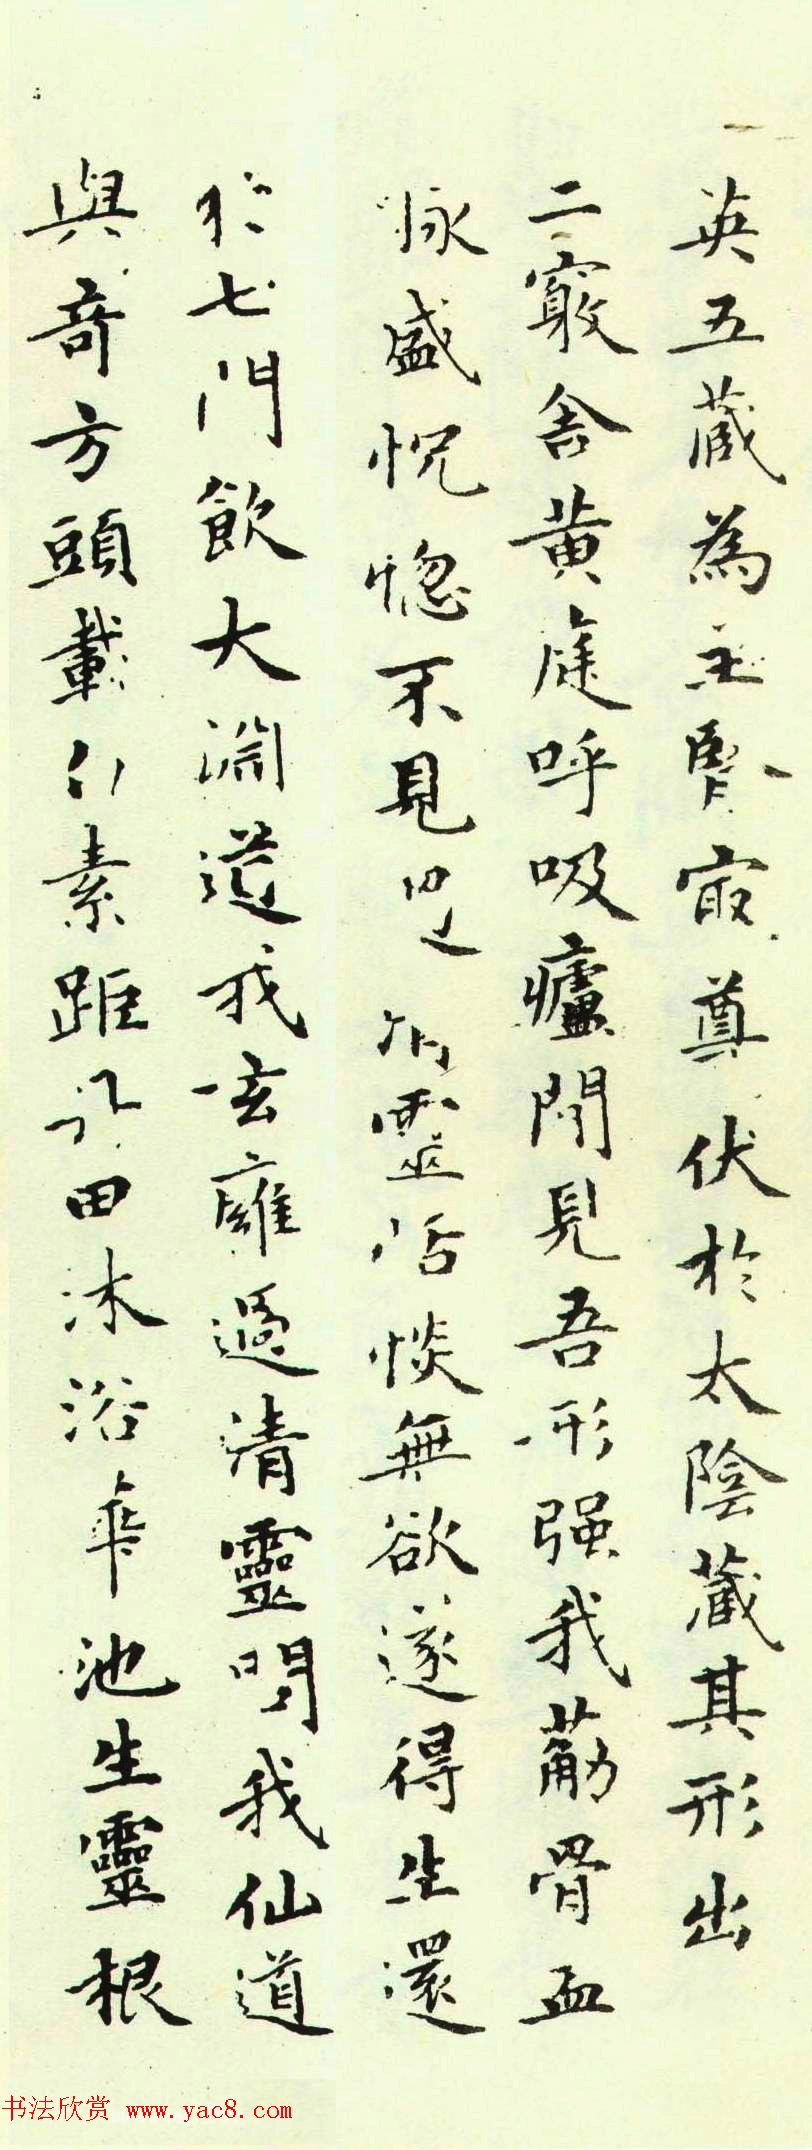 英五藏為主腎寂尊伏於太陰藏其形出
二竅舍黃庭呼吸癧間見吾形强我萮骨血
脉盛怳惚不見過清靈恬惔無欲遂得生還
於七門飲大淵道我玄雍過清靈問我仙道
與奇方頭載白素距丹田沐浴華池生靈根
书法欣赏 www.yac8.com